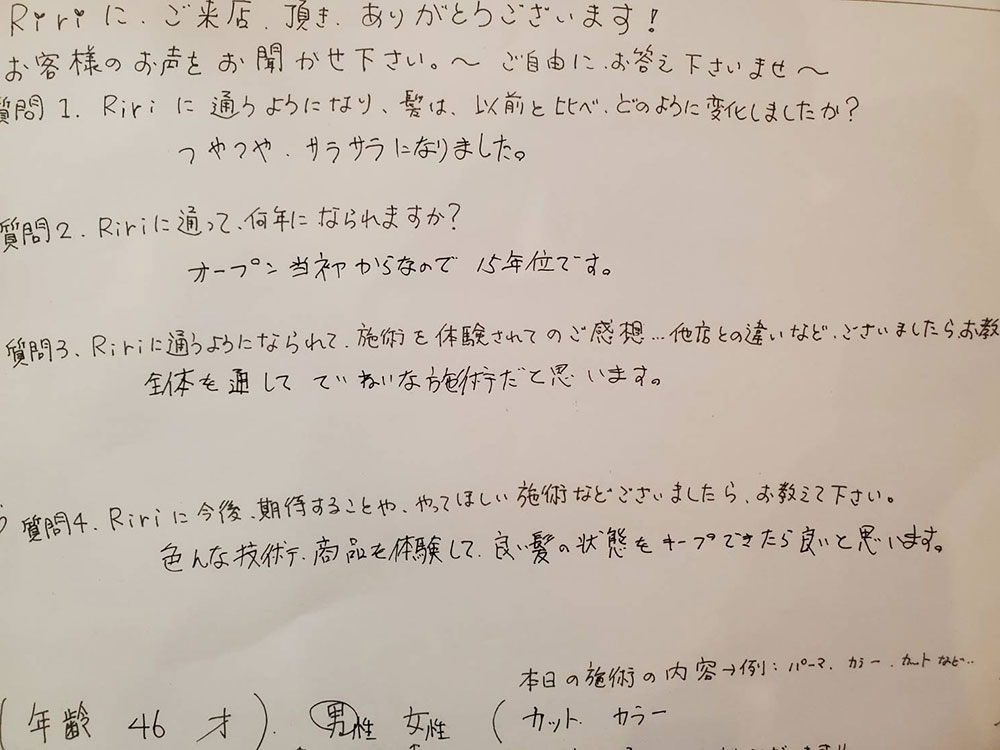 Ririに、ご来店、頂き、ありがとうございます!
お客様のお声をお聞かせ下さい。〜 ご自由に、お答え下さいませ〜
質問1. Ririに通うようになり、髪は、以前と比べ、どのように変化しましたか?
つやつや、サラサラになりました。
質問2. Ririに通って、何年になられますか?
オープン当初からなので 15年位です。
質問3、Ririに通うようになられて、施術を体験されてのご感想…他店との違いなど、ございましたら、お教
全体を通して ていねいな施術だと思います。
質問4、Ririに今後、期待することや、やってほしい施術などございましたら、お教えて下さい。
色んな技術、商品を体験して、良い髪の状態をキープできたら良いと思います。
本日の施術の内容→例: パーマ、カラー、カットなど…
(年齢 46 才)、 男性 女性 (カット カラー